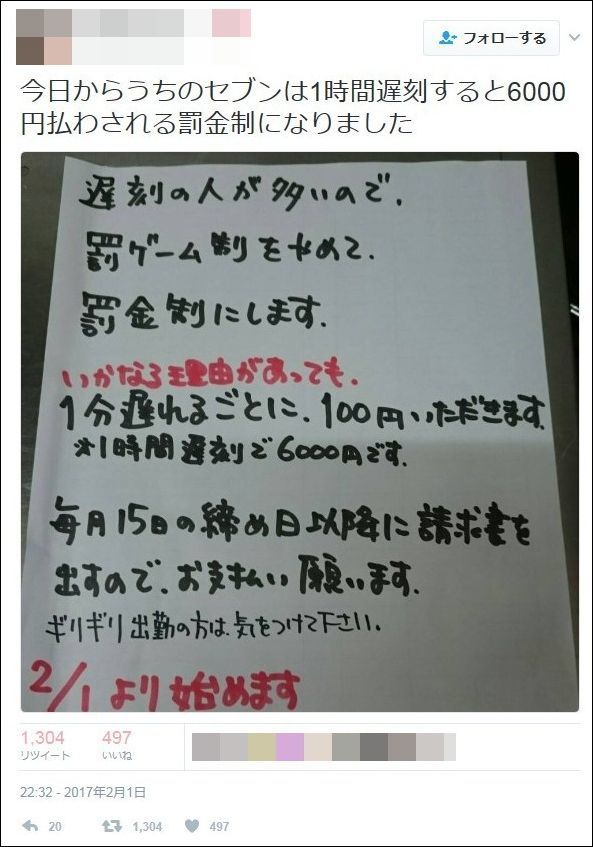 フォローする
今日からうちのセブンは1時間遅刻すると6000
円払わされる罰金制になりました
遅刻の人が多いので、
罰ゲーム制をやめて、
罰金制にします。
いかなる理由があっても、
1分遅れるごとに、100円いただきます。
※1時間遅刻で6000円です。
毎月15日の締め日以降に請求書を
出すので、お支払い願います。
ギリギリ出勤の方は、気をつけて下さい。
2/1より始めます
1,304 497
リツイート いいね
22:32 - 2017年2月1日
20 1,304 497